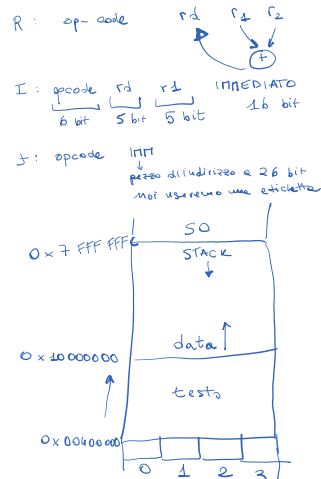 R: op-code rd r1 r2
+
I: opcode rd r1 IMMEDIATO
6 bit 5 bit 5 bit 16 bit
J: opcode IMM
pezzo di indirizzo a 26 bit
noi useremo una etichetta
SO
0x7FFF FFFC
STACK
data
0x10000000
testo
0x00400000
0 1 2 3